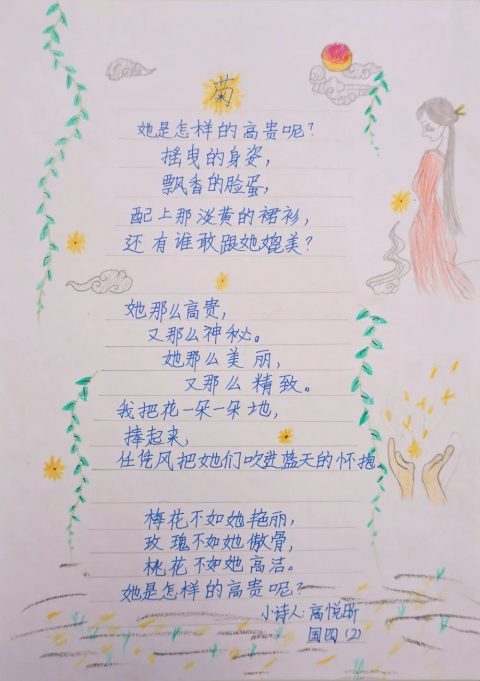 菊
她是怎样的高贵呢？
摇曳的身姿，
飘香的脸蛋，
配上那淡黄的裙衫，
还有谁敢跟她媲美？
她那么高贵，
又那么神秘。
她那么美丽，
又那么精致。
我把花一朵一朵地，
捧起来，
任凭风把她们吹进蓝天的怀抱。
梅花不如她艳丽，
玫瑰不如她傲骨，
桃花不如她高洁。
她是怎样的高贵呢？
小诗人：高悦昕
国四（2）